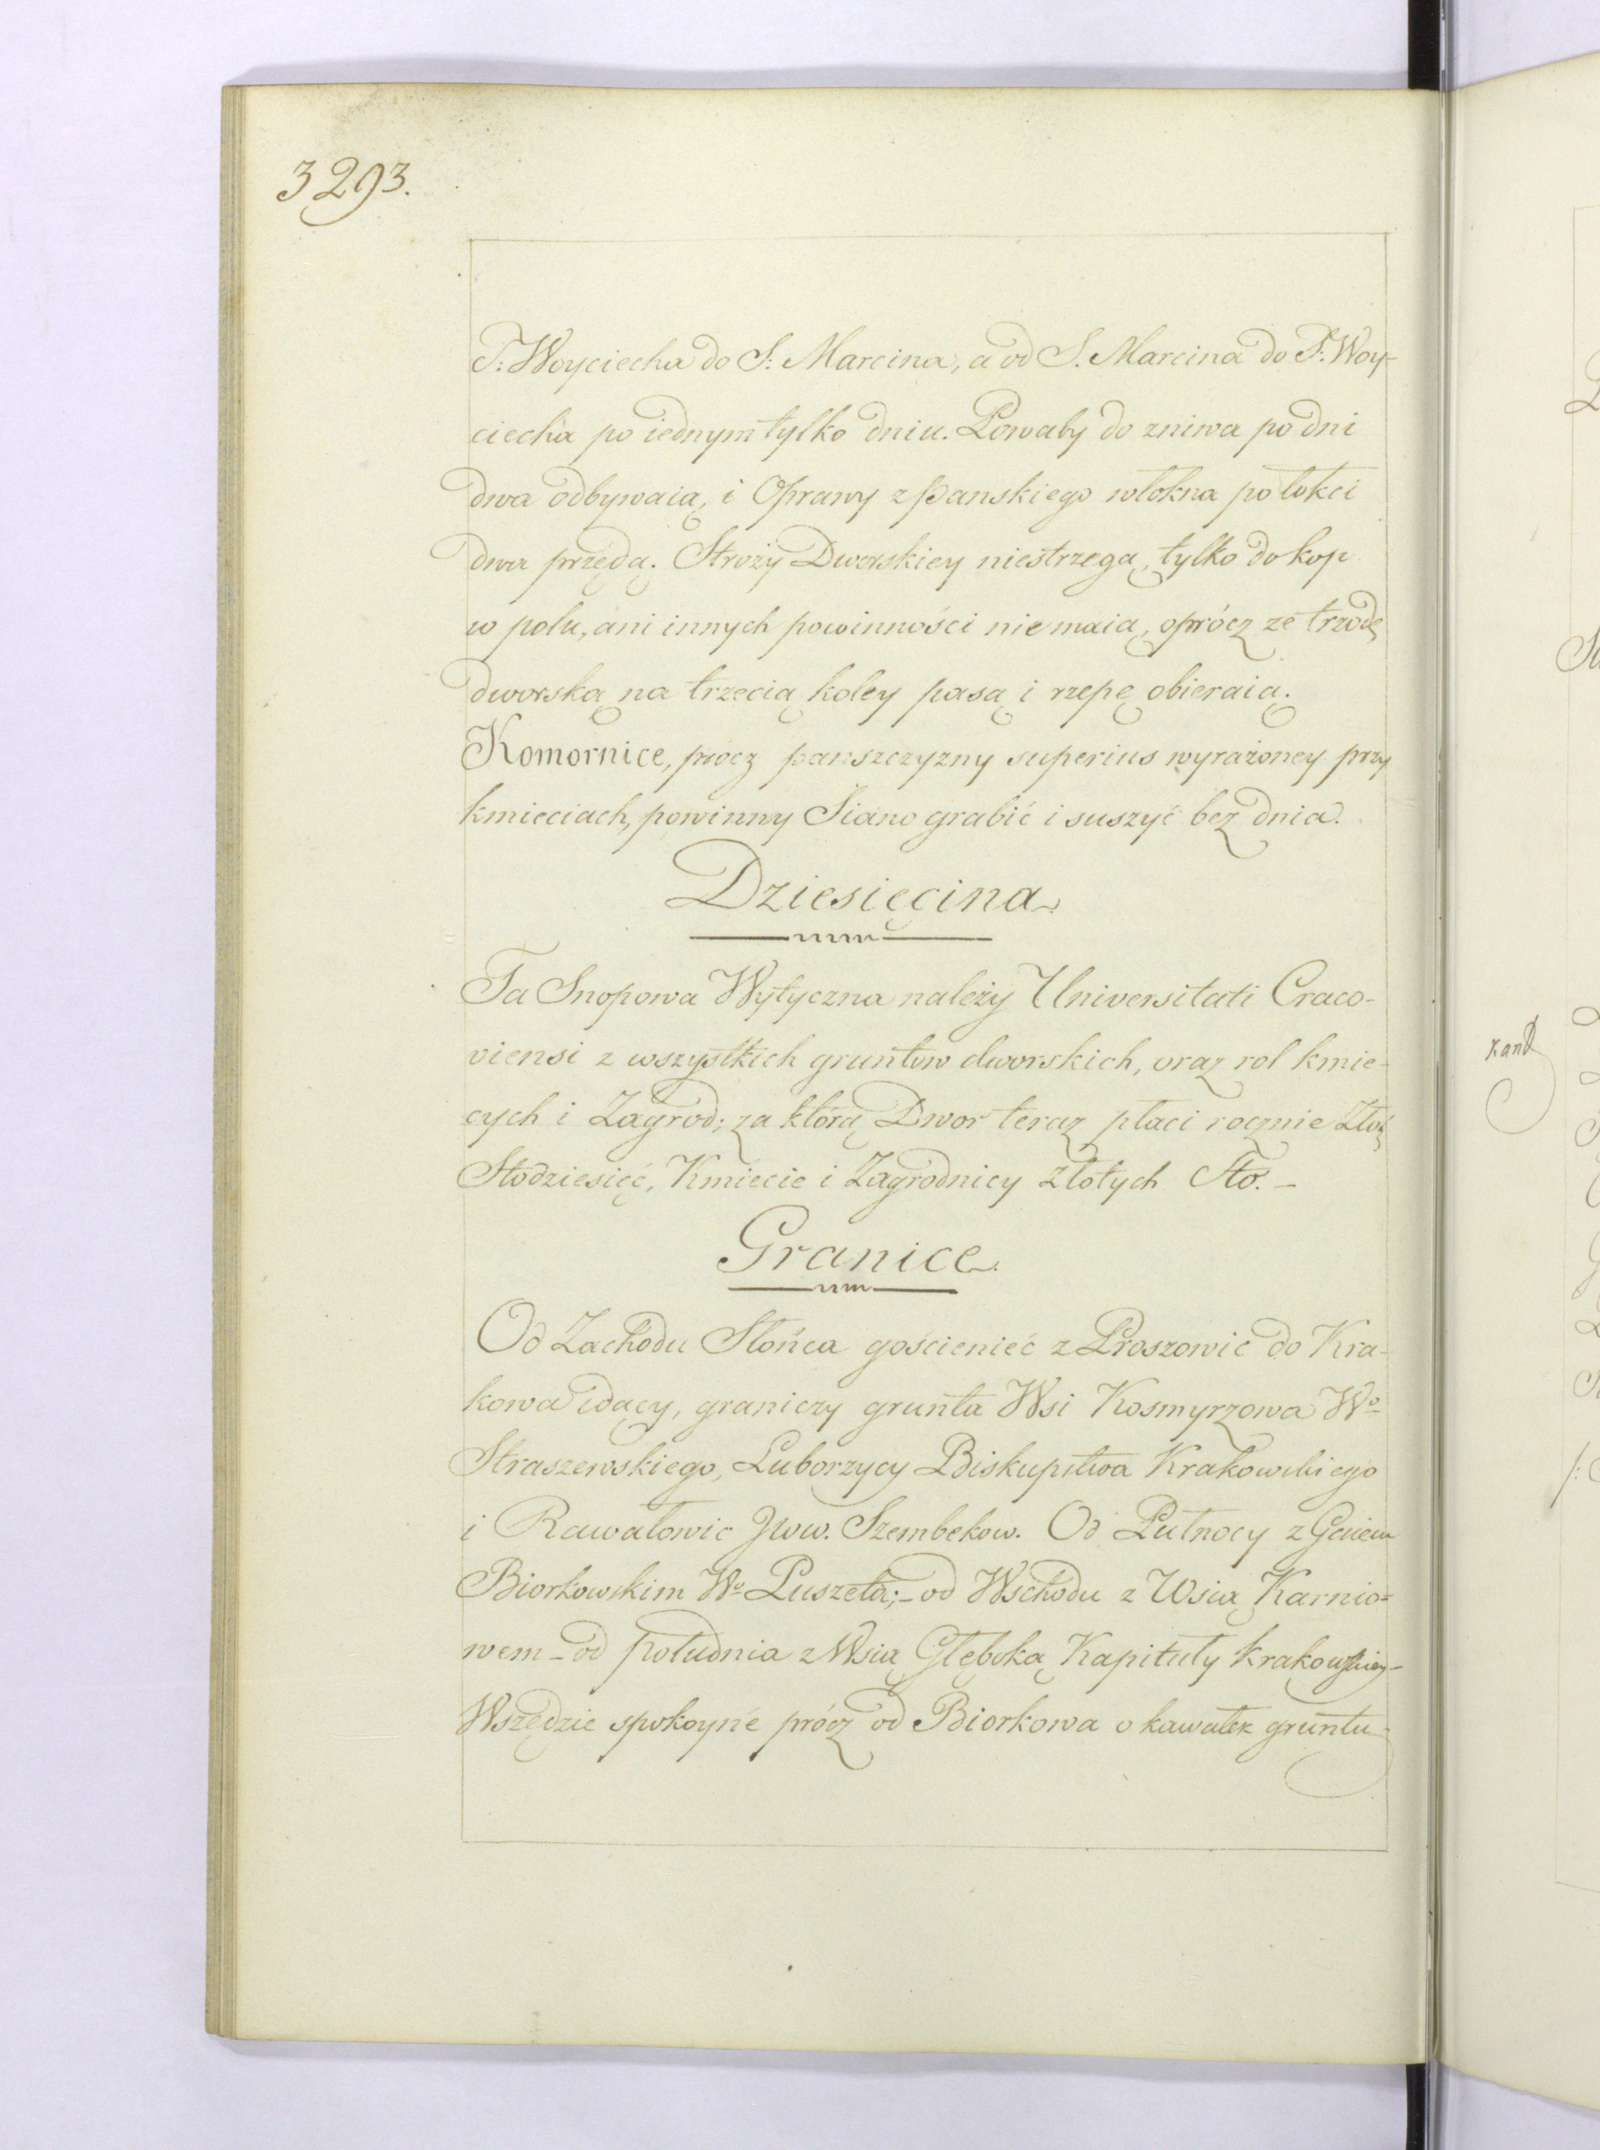 3293.
S: Woyciecha do S: Marcina, a od S. Marcina do S: Woy-
ciecha po iednym tylko dniu. Powaby do zniwa po dni
dwa odbywaią, i Oprawy z panskiego włokna po łokci
dwa przędą. Stroży Dworskiey niestrzegą, tylko do kop
w polu, ani innych powinności nie maią, oprócz ze trzodę
dworską na trzecią koley pasą i rzepę obieraią.
Komornice, prócz panszczyzny superius wyrażoney przy
kmieciach, powinny Siano grabić i suszyć bez dnia.
Dziesięcina
Ta Snopowa Wytyczna należy Universitati Craco-
viensi z wszystkich gruntow dworskich, oraz rol kmie-
cych i Zagrod; za którą Dwor teraz płaci rocznie Złot
Stodziesięć, Kmiecie i Zagrodnicy złotych Sto. –
Granice
Od Zachodu Słońca gościenieć z Proszowic do Kra-
kowa idący, graniczy grunta Wsi Kosmyrzowa Wo
Straszewskiego, Luborzycy Biskupstwa Krakowskiego
i Rawałowic Jww. Szembekow. Od Pułnocy z Gaiem
Biorkowskim Wo Puszeta; – od Wschodu z Wsią Karnio=
wem – od południa z Wsią Głęboką Kapituły Krakowskiey –
Wszędzie spokoyne prócz od Biorkowa o kawałek gruntu